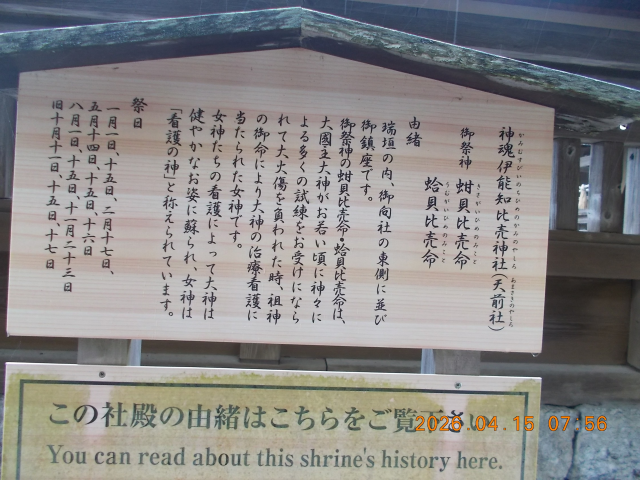 神魂伊能知比売神社(天前社)
かみむすびいのちひめのかみのやしろ あまさきのやしろ
御祭神 蚶貝比売命
きさがいひめのみこと
蛤貝比売命
うむがいひめのみこと
由緒
瑞垣の内、御向社の東側に並び
御鎮座です。
御祭神の蚶貝比売命・蛤貝比売命は、
大國主大神がお若い頃に神々に
よる多くの試練をお受けになら
れて大火傷を負われた時、祖神
の御命により大神の治療看護に
当たられた女神です。
女神たちの看護によって大神は
健やかなお姿に蘇られ、女神は
「看護の神」と称えられています。
祭日
一月一日、十五日、二月十七日、
五月十四日、十五日、十六日
八月一日、十五日、十一月二十三日
旧十月十一日、十五日、十七日
この社殿の由緒はこちらをご覧下さい
You can read about this shrine's history here.
2026.04.15 07:56